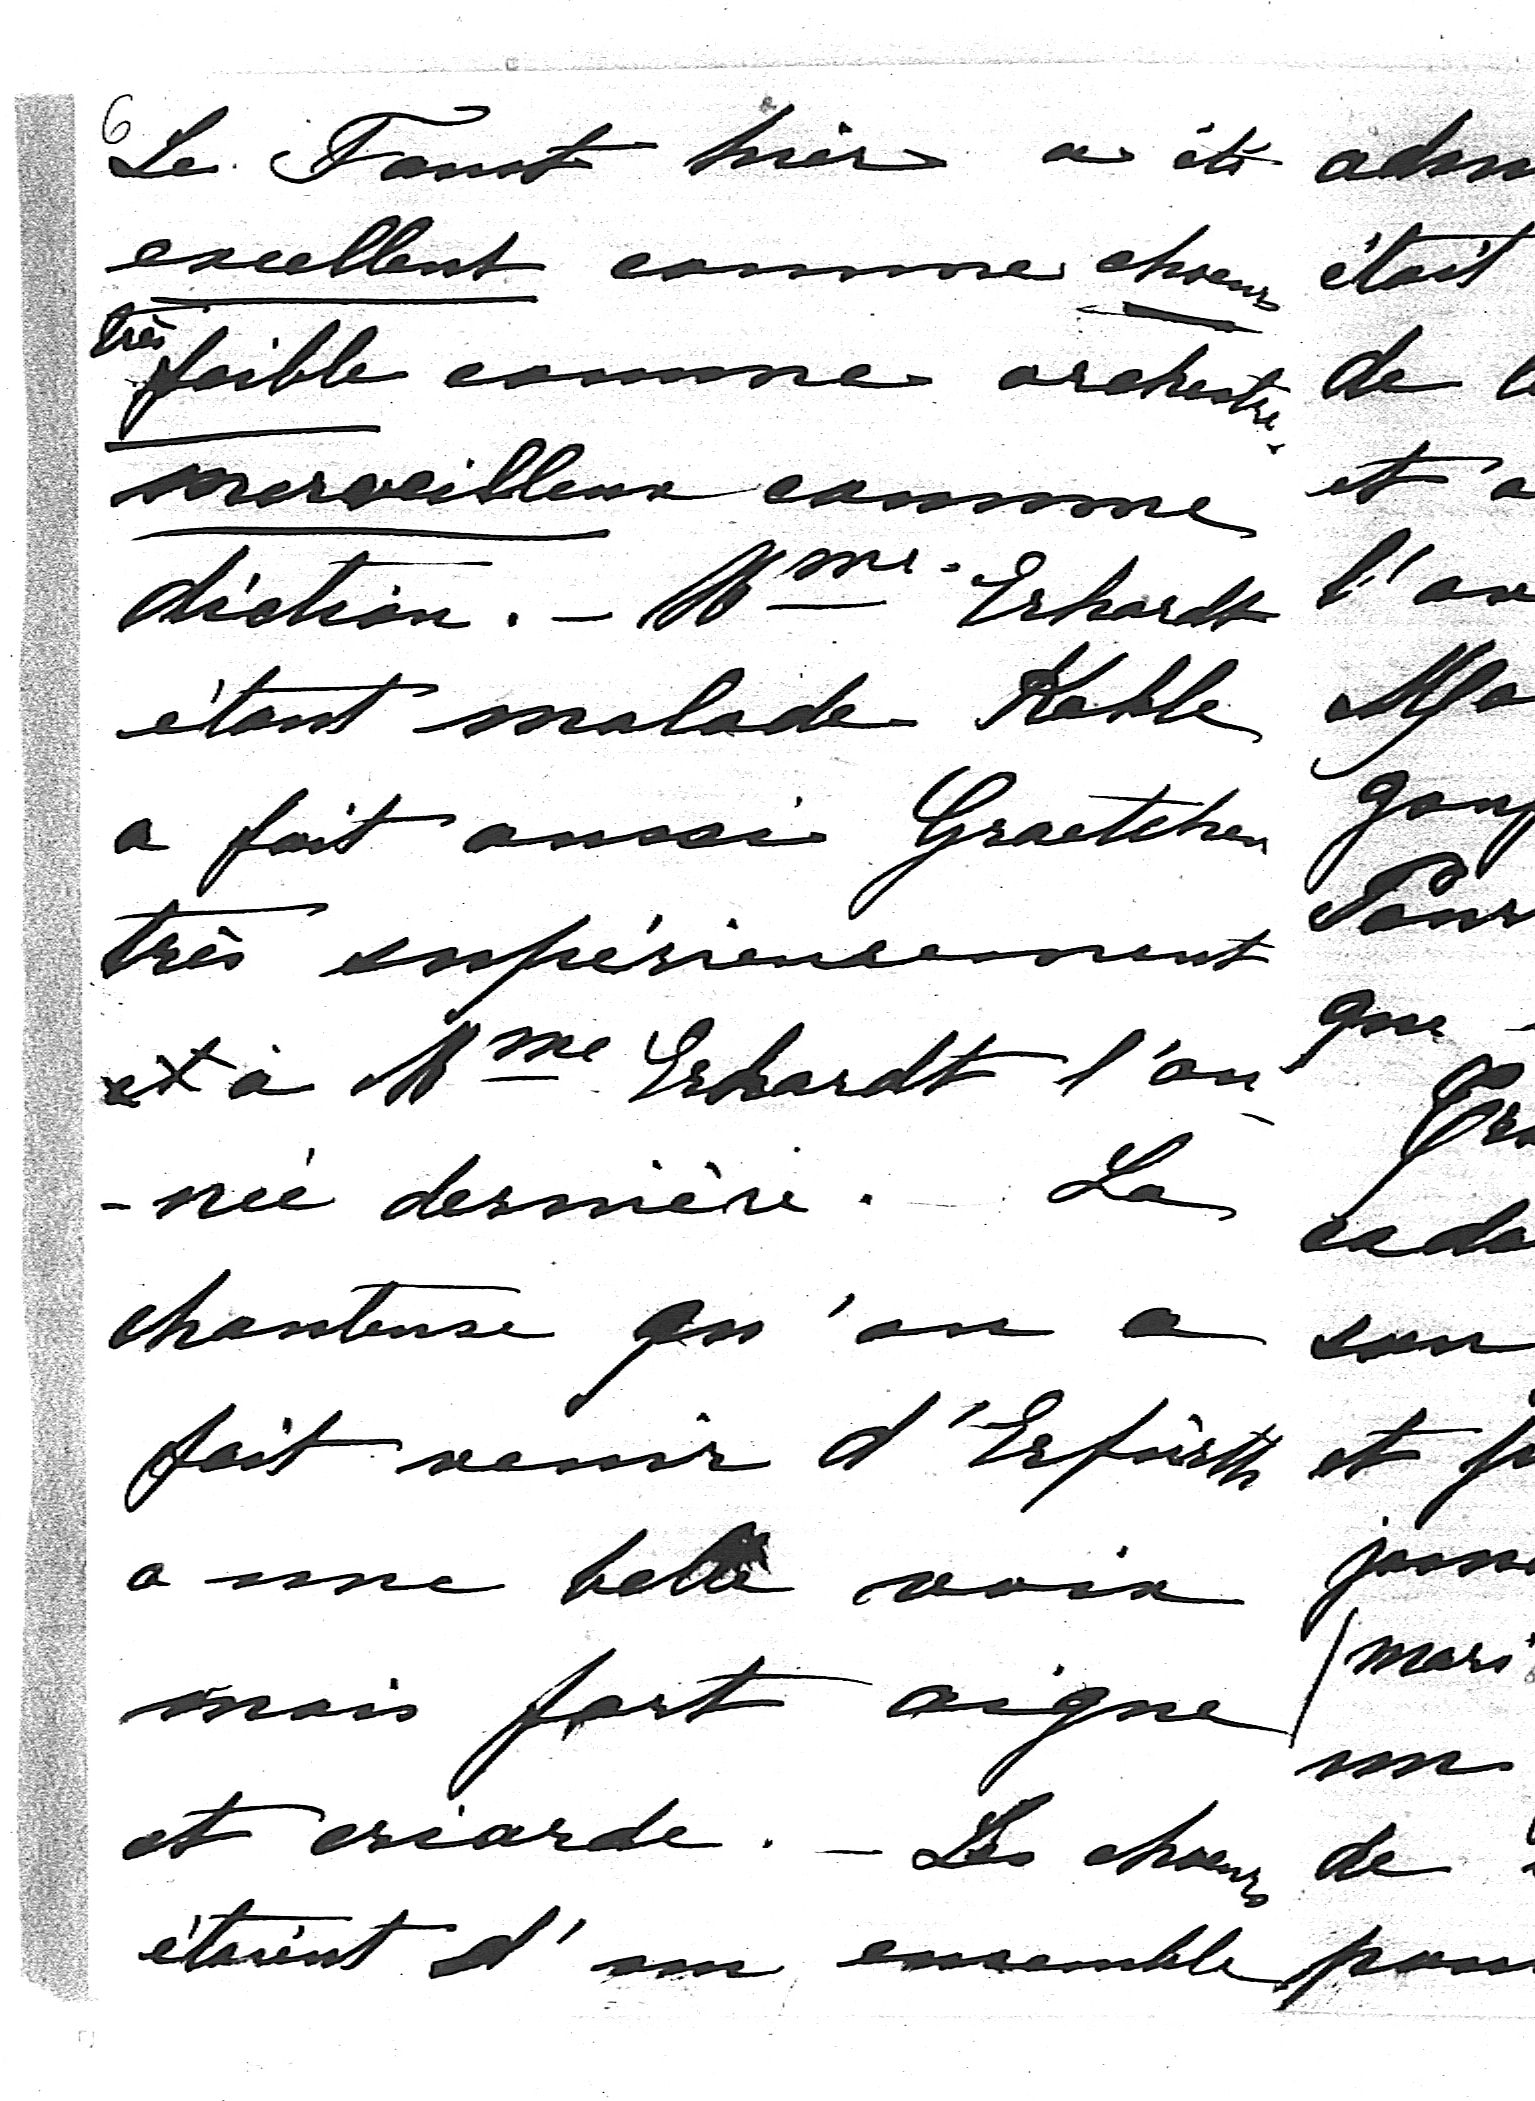 6
Le Faust hier a été
excellent comme choeurs
très faible comme orchestre.
merveilleux comme
diction. – Mme. Erhardt
étant malade Kahle
a fait aussi Graetchen
très supérieurement
à Mme Erhardt l'an
-née dernière. La
chanteuse qu'on a
fait venir d'Erfürth
a une belle voix
mais fort aigue
et criarde. – Les choeurs
étaient d'un ensemble
adm
était
de
et a
l'av
Ma
que
son
et
mari
un
de
pour